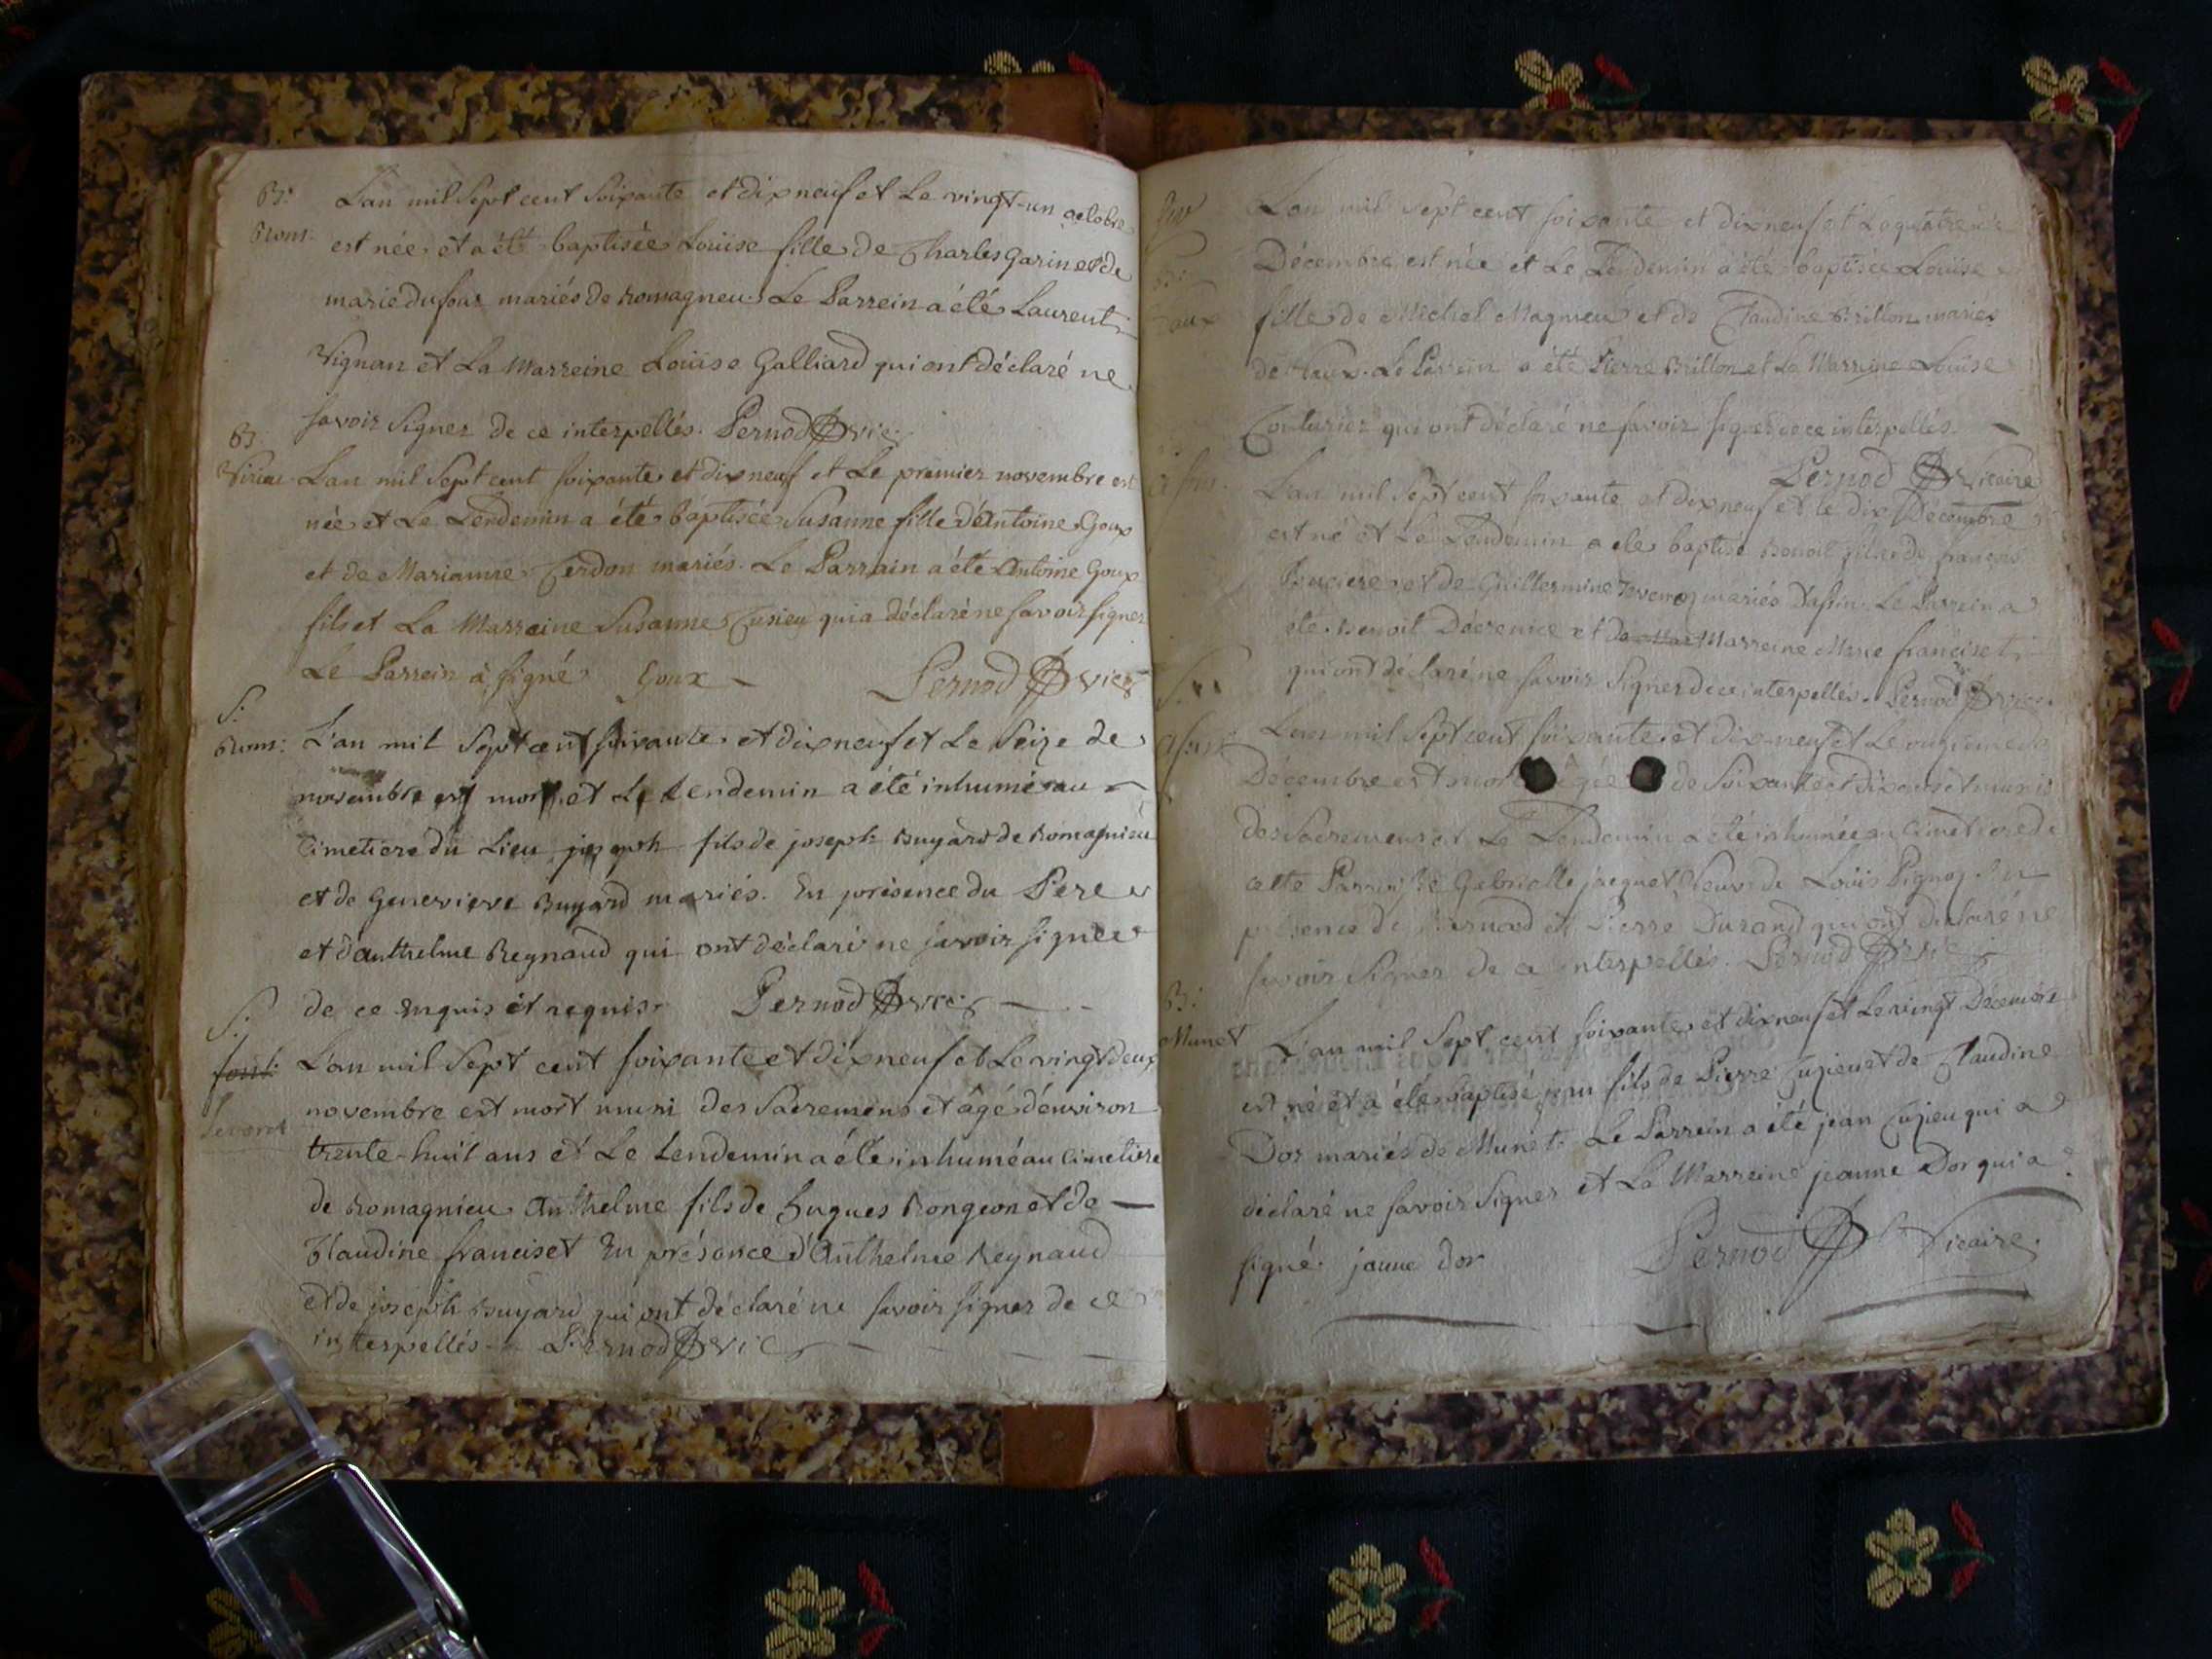 B:
Rom:
L'an mil Sept cent Soixante et dix neuf et Le vingt-un octobre
est née et a été baptisée Louise fille de Charles Garin et de
marie dufour mariés de Romagneu. Le Parrein a été Laurent
Vignon et La Marreine Louise Galliard qui ont déclaré ne
savoir Signer de ce interpellés. Pernod vic:
B:
L'an mil Sept cent soixante et dix neuf et Le premier novembre est
née et Le Lendemin a été baptisée Susanne fille d'Antoine Goux
et de Marianne Cerdon mariés. Le Parrain a été Antoine Goux
fils et La Marraine Susanne qui a déclaré ne savoir signer
Le Parrein à signé Goux Pernod vic:
S:
Rom:
L'an mil Sept cent soixante et dix neuf et Le Seize de
novembre est mort et Le Lendemin a été inhumé au
Cimetiere du Lieu joseph fils de joseph Buyard de Romagnieu
et de Genevieve Buyard mariés. En présence du Pere
et d'anthelme Reynaud qui ont déclaré ne savoir signer
de ce enquis et requis. Pernod vic:
S:
font:
Leveret
L'an mil Sept cent soixante et dix neuf et Le vingt deux
novembre est mort muni des Sacremens et âgé d'environ
trente-huit ans et Le Lendemin a été inhumé au Cimetiere
de Romagnieu Anthelme fils de hugues Rongeon et de
Claudine franciset En présence d'Anthelme Reynaud
et de joseph Buyard qui ont déclaré ne savoir signer de ce
interpellés. Pernod vic
B:
aux
L'an mil sept cent soixante et dix neuf et Le quatre de
Décembre est née et Le Lendemin a été baptisée Louise
fille de Michel Magnieu et de Claudine Brillon mariés
de Le Parrein a été Pierre Brillon et La Marreine Louise
Couturier qui ont déclaré ne savoir signer de ce interpellés.
Pernod Vicaire
L'an mil Sept cent soixante et dix neuf et le dix Décembre
est né et Le Lendemin a été baptisé Benoit fils de françois
et de Guillermine mariés Le Parrein a
été Benoit et Marreine Marie franciset
qui ont déclaré ne savoir Signer de ce interpellés. Pernod vic:
S:
L'an mil Sept cent soixante et dix-neuf et Le onzieme de
Décembre est mor âgée de Soixante et dix ans et munie
des Sacremens et Le Lendemin a été inhumée au Cimetiere de
cette Parroisse Gabrielle jacquet Veuve de Louis Pignoz. En
présence de et Pierre Durand qui ont déclaré ne
savoir Signer de ce interpellés. Pernod vic:
B:
Munet
L'an mil Sept cent soixante et dix neuf et Le vingt Décembre
est né et a été baptisé jean fils de Pierre Cuzieu et de Claudine
Dor mariés de Munet. Le Parrein a été jean Cuzieu qui a
déclaré ne savoir Signer et La Marreine jeanne Dor qui a
signé. janne dor Pernod Vicaire.